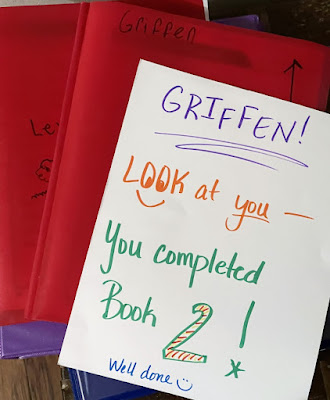 Griffen
GRIFFEN!
LOOK at you —
You completed
Book 2!
Well done ☺